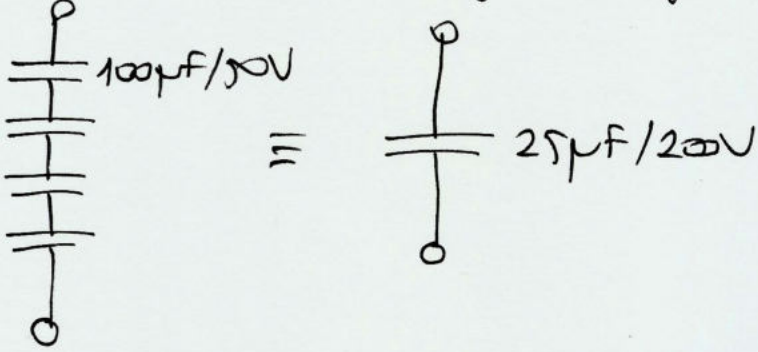 100μF/50V
≡ 25μF/200V